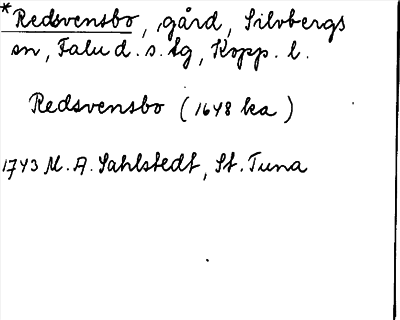 *Redsvensbo, gård, Silvbergs
sn, Falu d. s. lg, Kopp. l.
Redsvensbo (1648 ka)
1743 M. A. Sahlstedt, St. Tuna